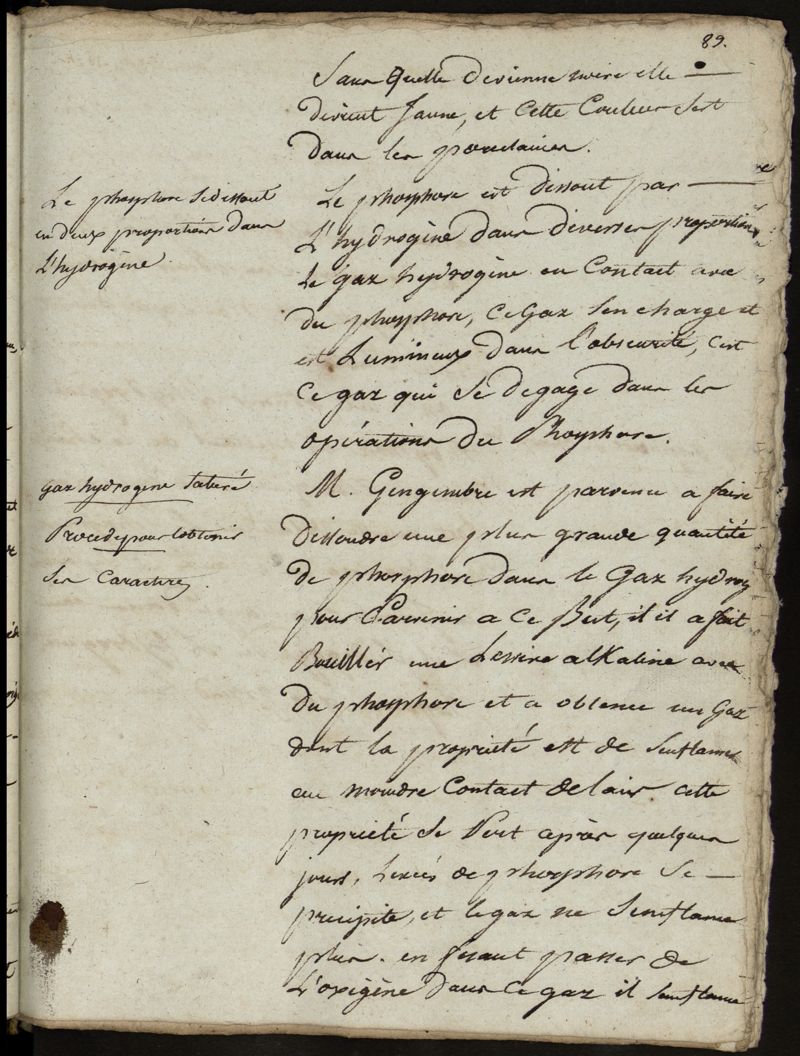 89.
Sans Quelle devienne noire elle
devient Jaune, et Cette Couleur Sert
dans les porcelaines.
Le phosphore Se dissout
en deux proportions dans
L'hydrogène
Le phosphore est dissout par
L'hydrogène dans diverses proportions
Le Gaz hydrogène en Contact avec
du phosphore, Ce Gaz S'en charge et
est Lumineux dans l'obscurité, C'est
Ce gaz qui Se degage dans les
opérations du Phosphore.
gaz hydrogene Saturé
Procede pour l'obtenir
Ses Caracteres.
M. Gengembre est parvenu a faire
dissoudre une plus grande quantité
de phosphore dans le Gaz hydrog
pour Parvenir a Ce But, il il a fait
Bouillir une Lessive alKaline avec
du phosphore et a obtenu un Gaz
dont la propriété est de Senflamer
au moindre Contact de lair cette
propriété Se Perd après quelques
jours, Lexcès de phosphore Se
precipite, et le gaz ne Senflame
plus. en fesant passer de
L'oxigène dans Ce gaz il Senflame